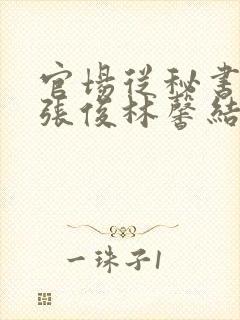 官場從秘書
張俊林馨結
一珠子1